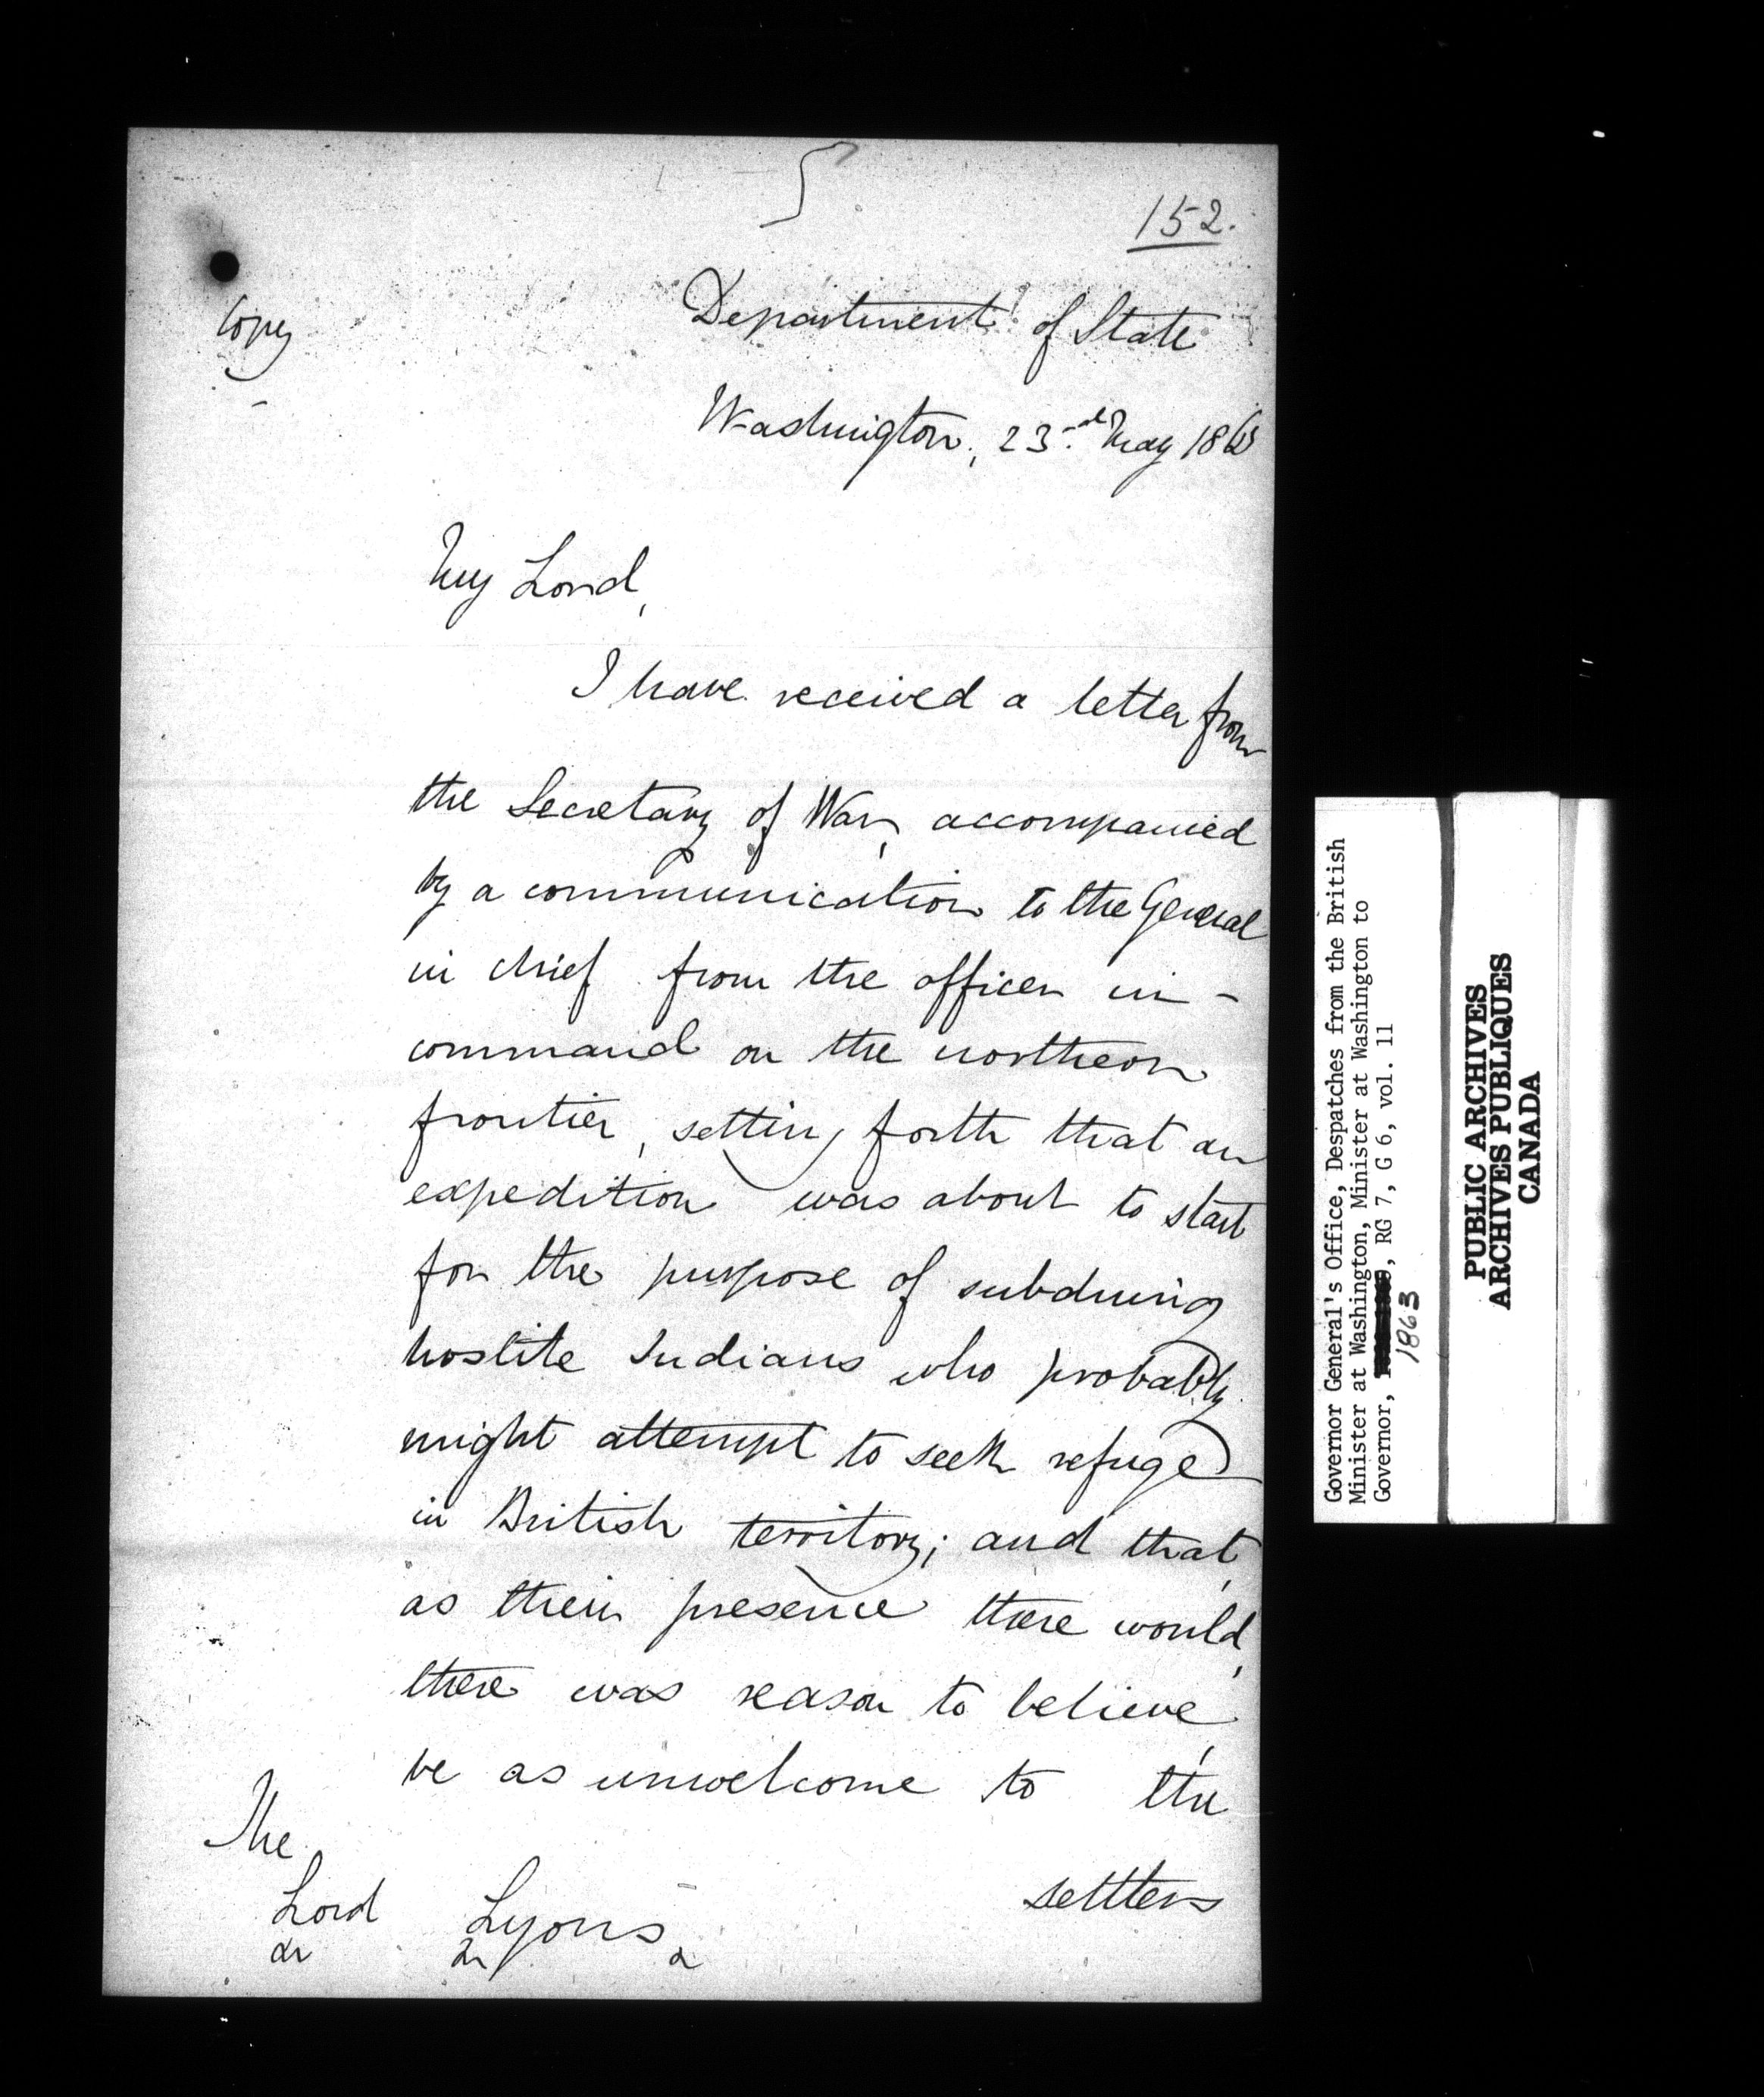 152.
Copy
Department of State
Washington, 23rd May 1863
My Lord,
I have received a letter from
the Secretary of War, accompanied
by a communication to the General
in chief from the officer in-
command on the northern
frontier, setting forth that an
expedition was about to start
for the purpose of subduing
hostile Indians who probably
might attempt to seek refuge
in British territory; and that,
as their presence there would,
there was reason to believe,
be as unwelcome to the
settlers
The
Lord Lyons
Governor General's Office, Despatches from the British
Minister at Washington, Minister at Washington to
Governor, RG 7, G 6, vol. 11
1863
PUBLIC ARCHIVES
ARCHIVES PUBLIQUES
CANADA